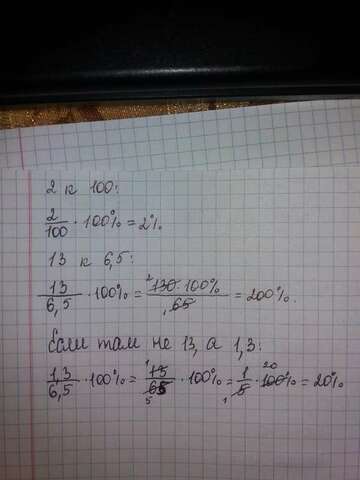 2 к 100:
2/100 · 100% = 2%
13 к 6,5:
13/6,5 · 100% = 130 · 100%/65 = 200%.
Если там не 13, а 1,3:
1,3/6,5 · 100% = 13/65 · 100% = 1/5 · 100% = 20%